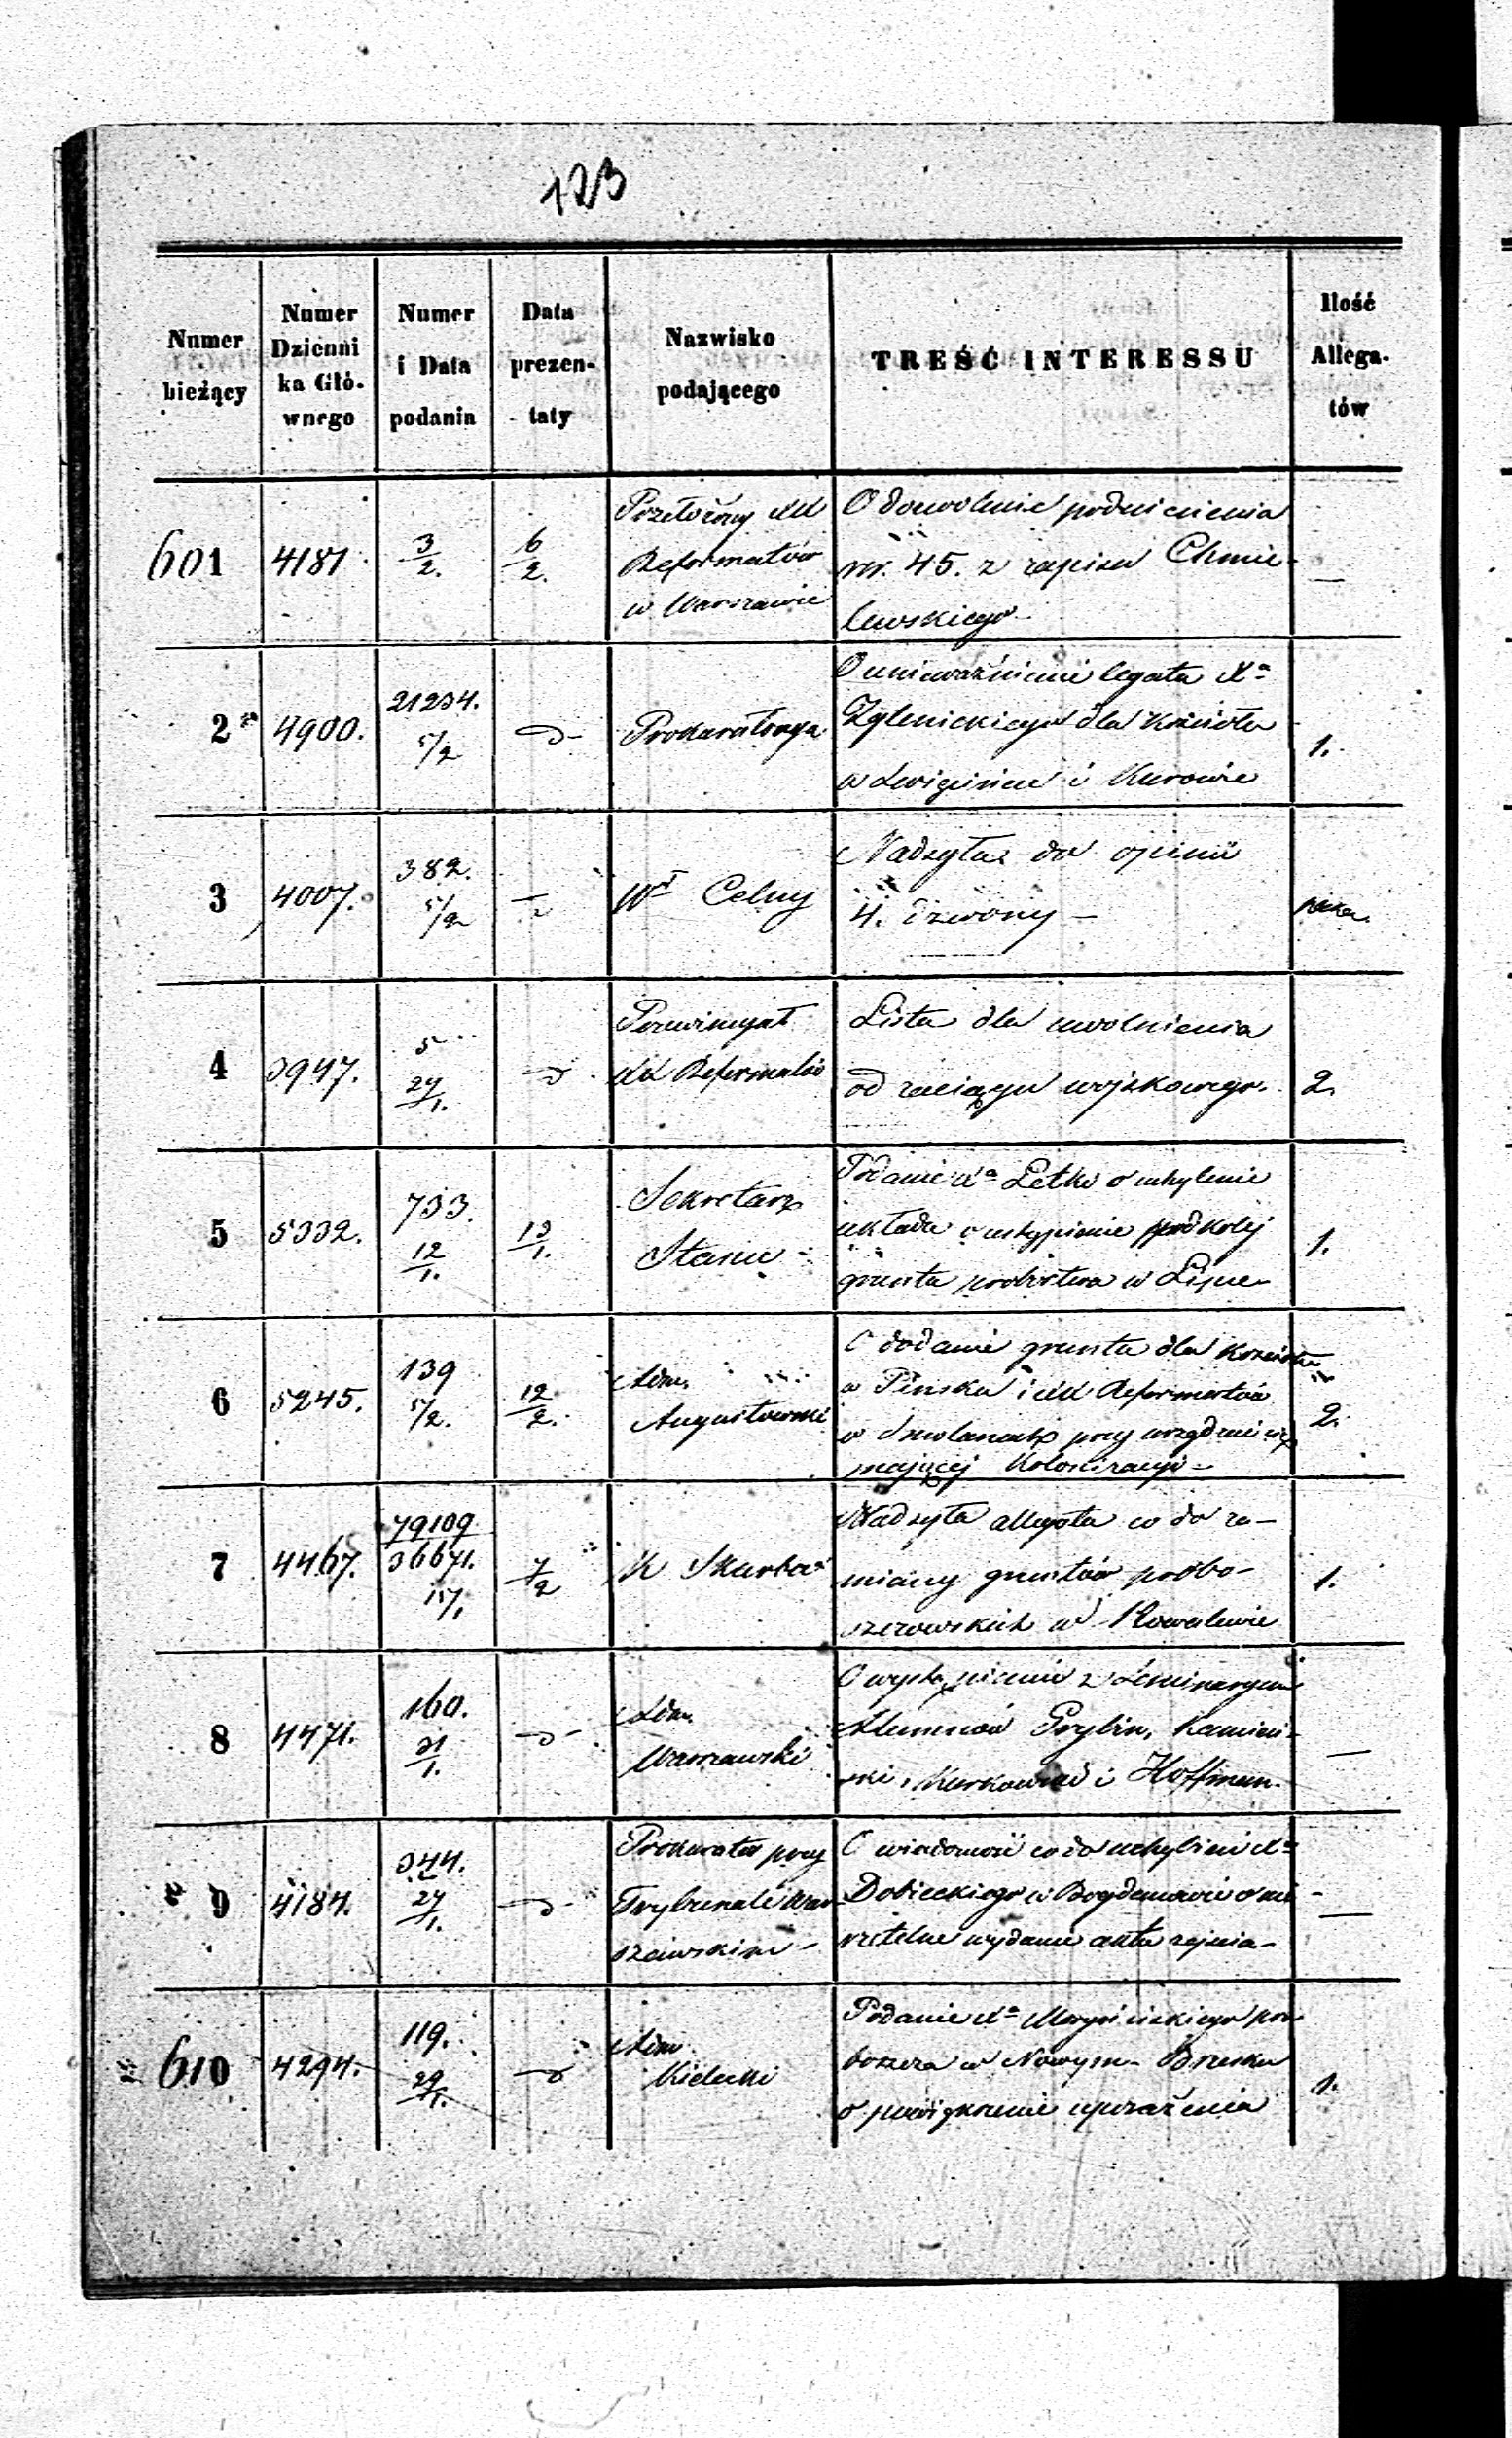 123
Numer bieżący
Numer Dzienni ka Głó- wnego
Numer i Data podania
Data prezen- taty
Nazwisko podającego
TREŚĆ INTERESSU
Ilość Allega- tów
601 4181 3/2. 6/2.
Przełożony XX
Reformatów
w Warszawie
O dozwolenie podniesienia
rsr. 45. z zapisu Chmie-
lewskiego —
2 4900. 21234. 5/2 Prokuratorya
O unieważnienie legatu Xa
dla Kościoła
w i Kurowie
1.
3 4007. 382. 5/2 Celny
Nadsyła do opinii
4. dzwony —
4 3947. 5 27/1.
Prowincyał
XX Reformatów
Lista dla uwolnienia
od zaciągu wojskowego.
2.
5 5332. 733. 12/1. 13/1.
Sekretarz
Stanu
Podanie Xa o uchylenie
układu o ustąpienie pod kolej
gruntu probostwa w
1.
6 5245. 139 5/2. 12/2.
Adm.
Augustowski
O dodanie gruntu dla Kościoła
w Pińsku i XX Reformatów
w Smolanach przy urządzeniu się
mającej Kolonizacyi —
2.
7 4467. 79109 36671. 15/1 7/2 K Skarbu
Nadsyła allegata co do za-
miany gruntów probo-
szczowskich w Kowalewie
1.
8 4471. 160. 31/1.
Adm.
Warszawski
O wystąpieniu z Seminaryum
Alumnów Grybin, Kamień-
ski, i Hoffman.
—
9 4184. 344. 27/1.
Prokurator przy
Trybunale War-
szawskim —
O wiadomość co do uchybień Xa
Dobieckiego w o nie
rzetelne wydanie aktu zejścia —
—
610 4294. 119. 29/1.
Adm
Kielecki
Podanie Xa pro
boszcza w Nowym- Brzesku
o powiększenie uposażenia
1.